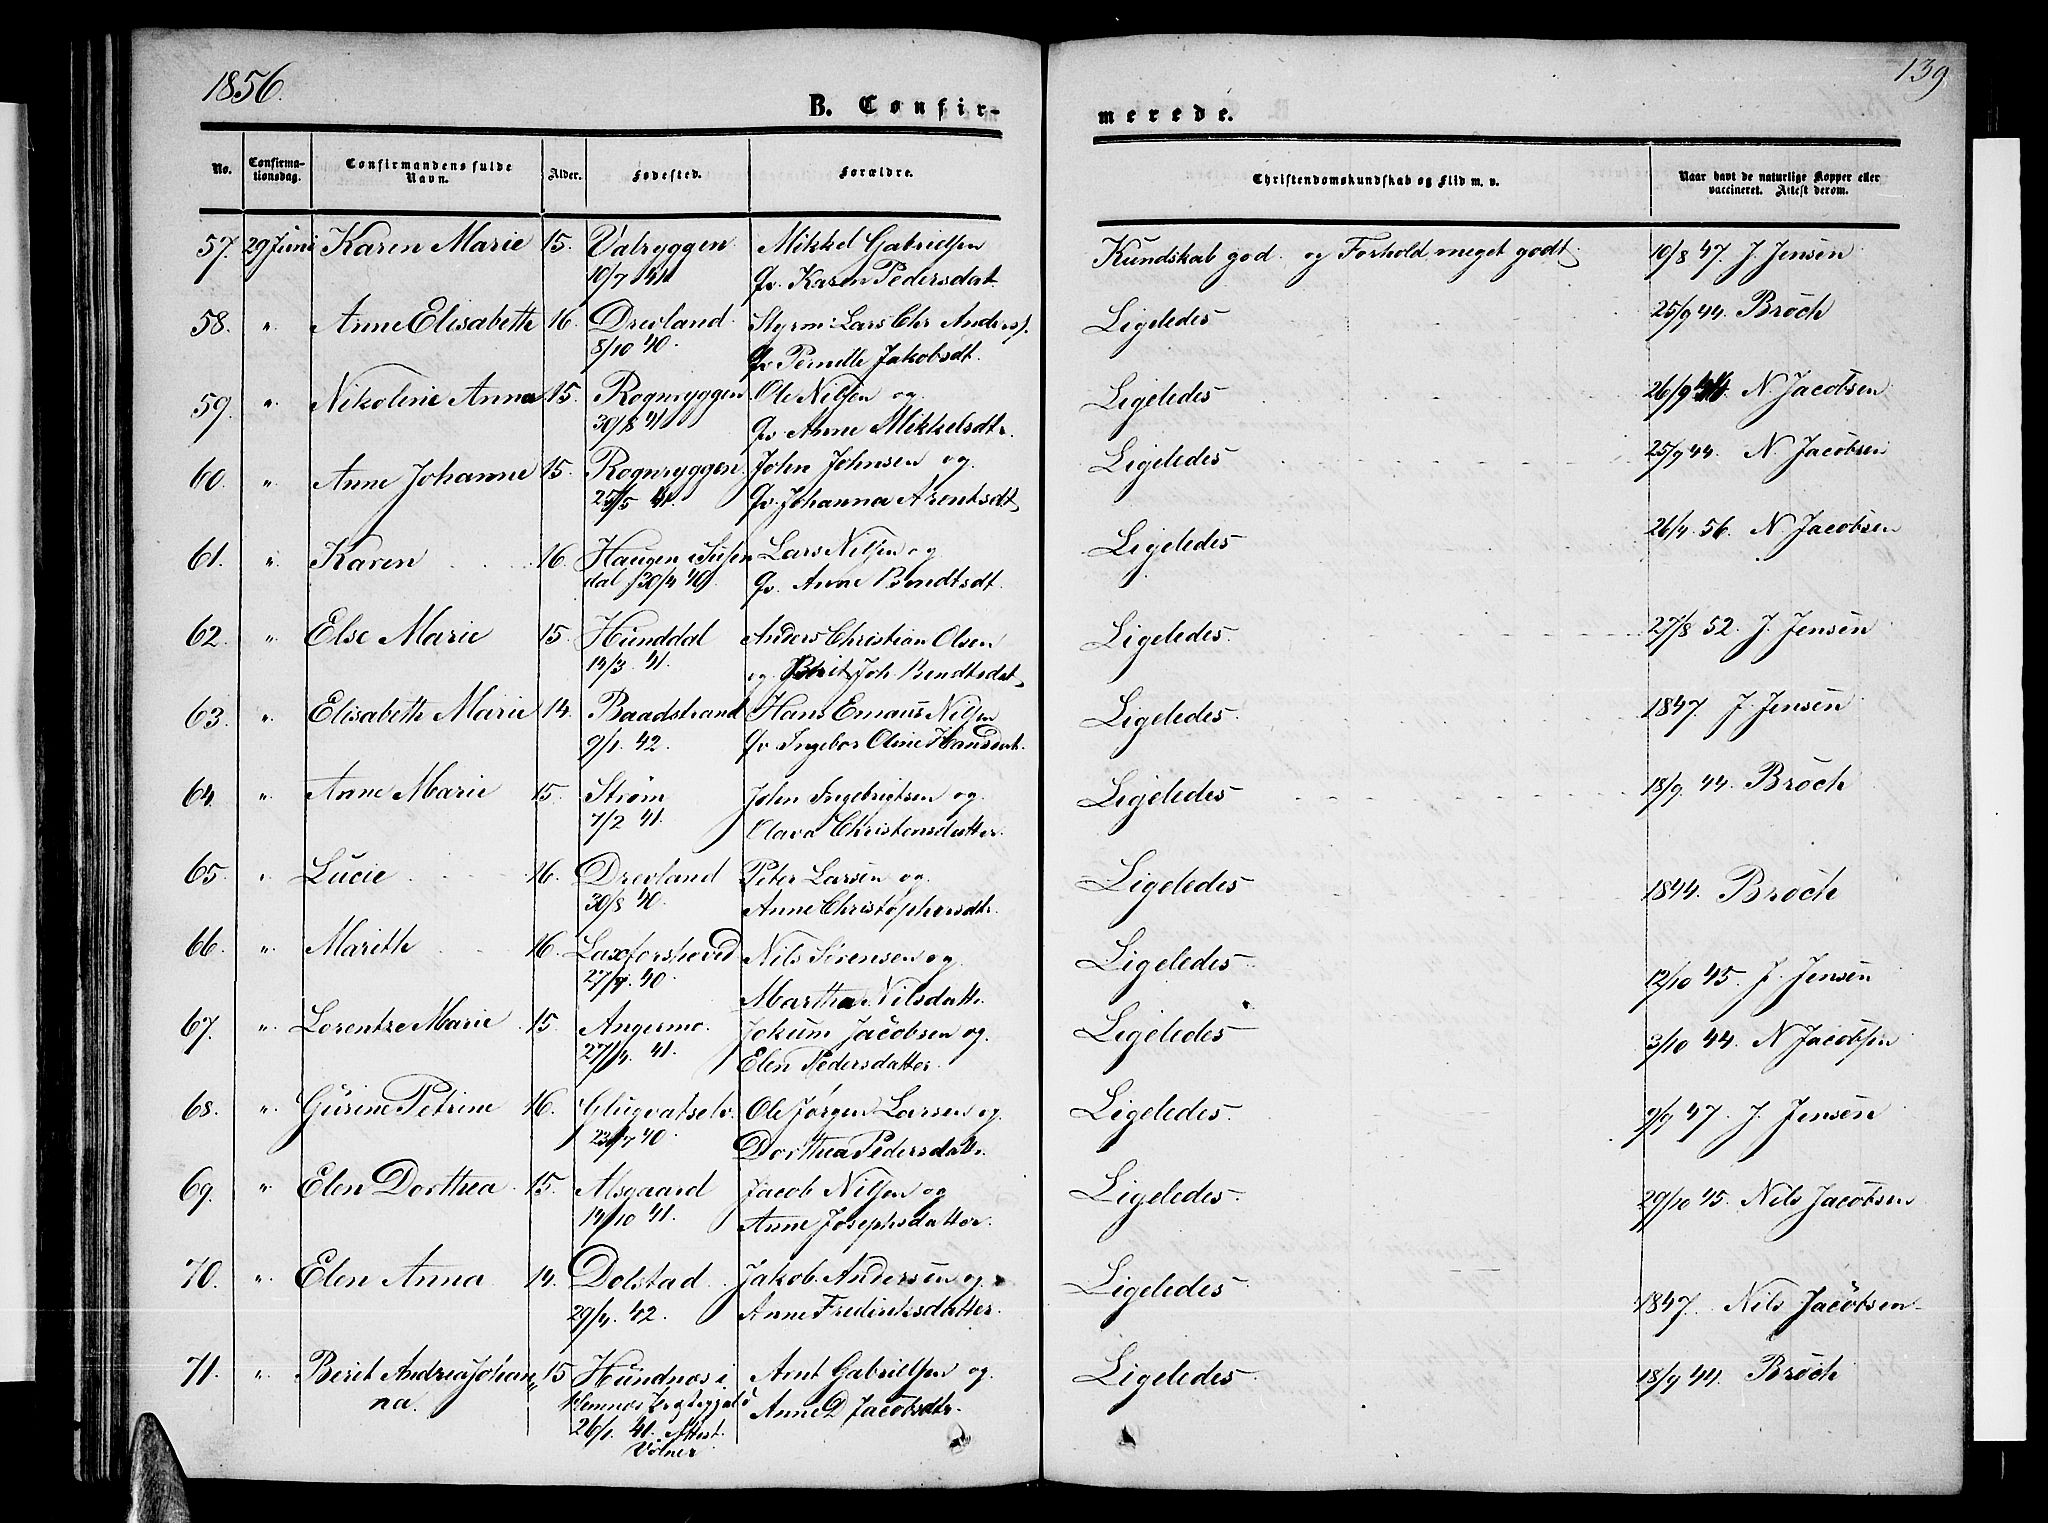 1856.
139
B. Confir-
merede.
No.
Confirma-
tionsdag.
Confirmandens fulde
Navn.
Alder.
Fødested.
Forældre.
Christendomskundskab og Flid m. v.
Naar havt de naturlige Kopper eller
vaccineret. Attest derom.
57. 29 Juni Karen Marie 15. Valryggen Mikkel Gabrielsen Kundskab god og Forhold meget godt. 10/8 47. J. Jensen
10/7 41 Qv. Karen Pedersdat
58. " Anne Elisabeth 16. Drevland Styrm: Lars Chr Anders. Ligeledes 25/9 44. Broch
8/10 40. Qv Pernille Jakobsdt.
59. " Nikoline Anna 15. Rognryggen Ole Nilsen og Ligeledes 26/9 44. N Jacobsen
30/8 41 Qv. Anne Mikkelsdtr.
60. " Anne Johanne 15. Rognryggen John Johnsen og Ligeledes 25/9 44. N. Jacobsen
25/5 41. Qv. Johanna Arentsdt
61. " Karen 16. Haugen i Susen Lars Nilsen og Ligeledes 26/4 56. N Jacobsen
dal 30/4 40. Qv. Anne Bendtsdt.
62. " Else Marie 15. Hunddal Anders Christian Olsen Ligeledes. 27/8 52. J. Jensen
14/3 41. og Berit Joh. Bendtsdat
63. " Elisabeth Marie 14. Baadstrand Hans Emaus Nilsen Ligeledes. 1847. J. Jensen
9/1. 42. Qv Ingebor Oline Hansdat.
64. " Anne Marie 15. Strøm John Ingebrigtsen og Ligeledes 18/9. 44. Broch
7/2 41. Olava Christensdatter.
65. " Lucie 16. Drevland Peter Larsen og Ligeledes 1844. Broch
30/8 40. Anne Christophersdtr.
66. " Marith 16. Laxforshoved Nils Sørensen og Ligeledes. 12/10 45. J. Jensen
40. Martha Nilsdattr.
67. " Lorentze Marie 15. Angermo. Jokum Jacobsen og Ligeledes 3/10 44. N Jacobsen
27/4. 41. Elen Pedersdatter.
68. " Gurine Petrine 16. Glugvatselv. Ole Jørgen Larsen og Ligeledes. 9/9 47. J. Jensen
23/7 40. Dorthea Pedersdattr.
69. " Elen Dorthea 15. Alsgaard Jacob Nilsen og Ligeledes. 29/10 45. Nils Jacobsen
14/10 41. Anne Josephsdatter.
70. " Elen Anna 14. Dolstad Jakob Andersen og Ligeledes. 1847. Nils Jacobsen
29/4. 42. Anne Frederiksdatter.
71. " Berit Andrea Johan 15 Hundnes i Arnt Gabrielsen og Ligeledes. 18/9 44. Broch
na. Hemnes Præstegjeld Anne D Jacobsdtr.
26/1. 41. Attest.
Volner